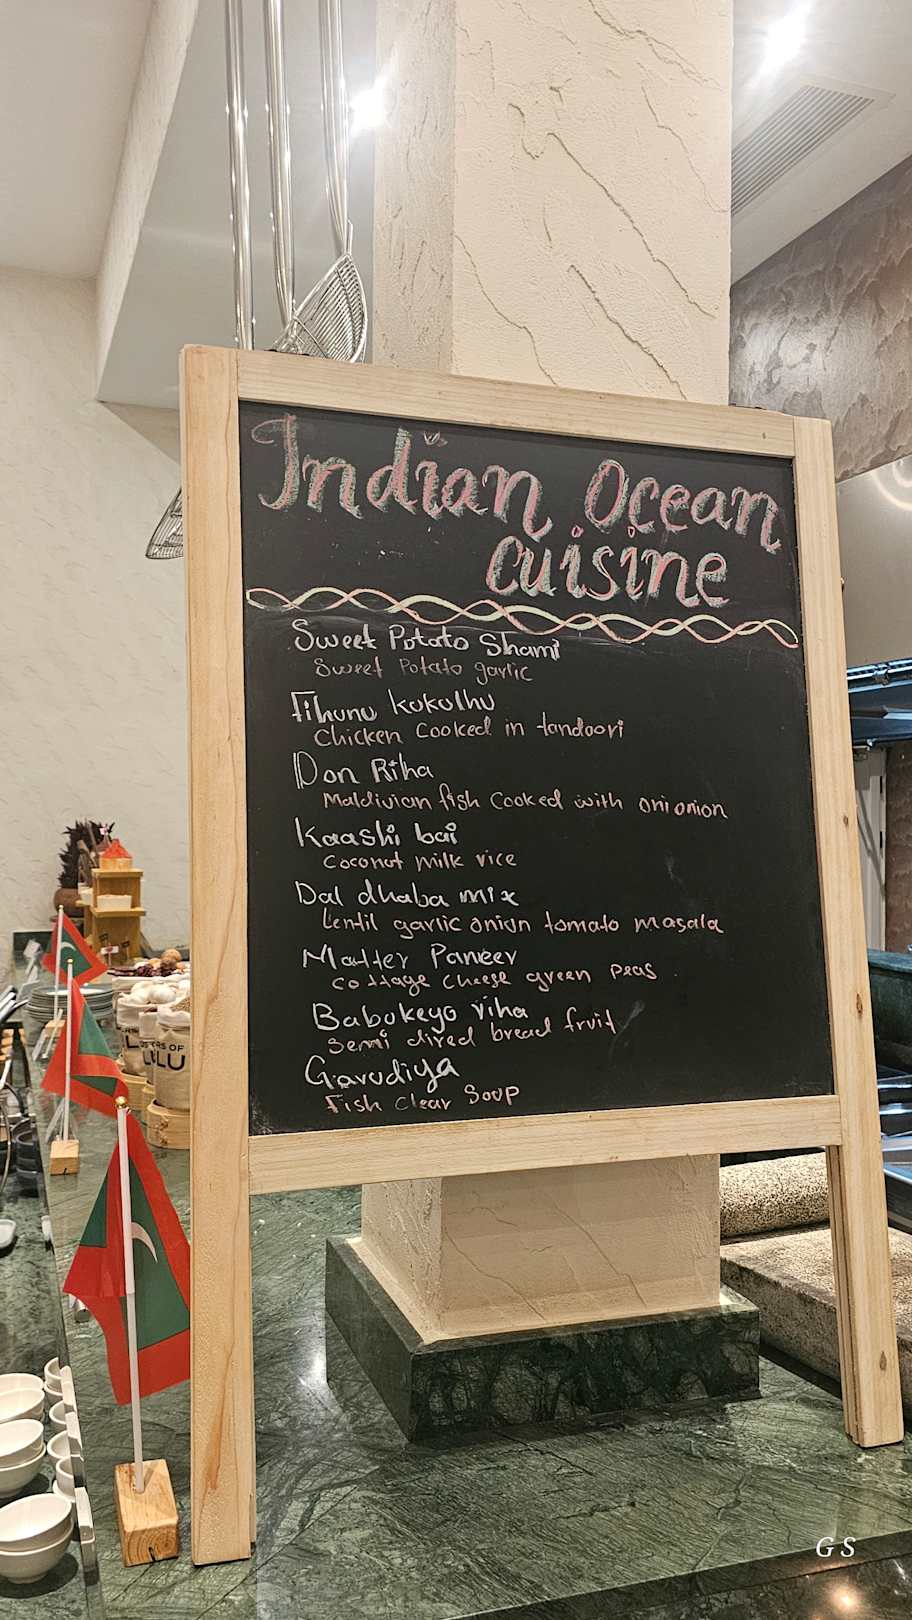 Indian Ocean
cuisine
Sweet Potato Shami
Sweet Potato garlic
Fihunu kukulhu
Chicken Cooked in tandoori
Don Riha
Maldivian fish Cooked with onionion
Kaashi bai
Coconut milk rice
Dal dhaba mix
Lentil garlic onion tomato masala
Matter Paneer
cottage cheese green peas
Babukeyo riha
Semi dired bread fruit
Garudiya
Fish Clear Soup
OF
LULU
G S